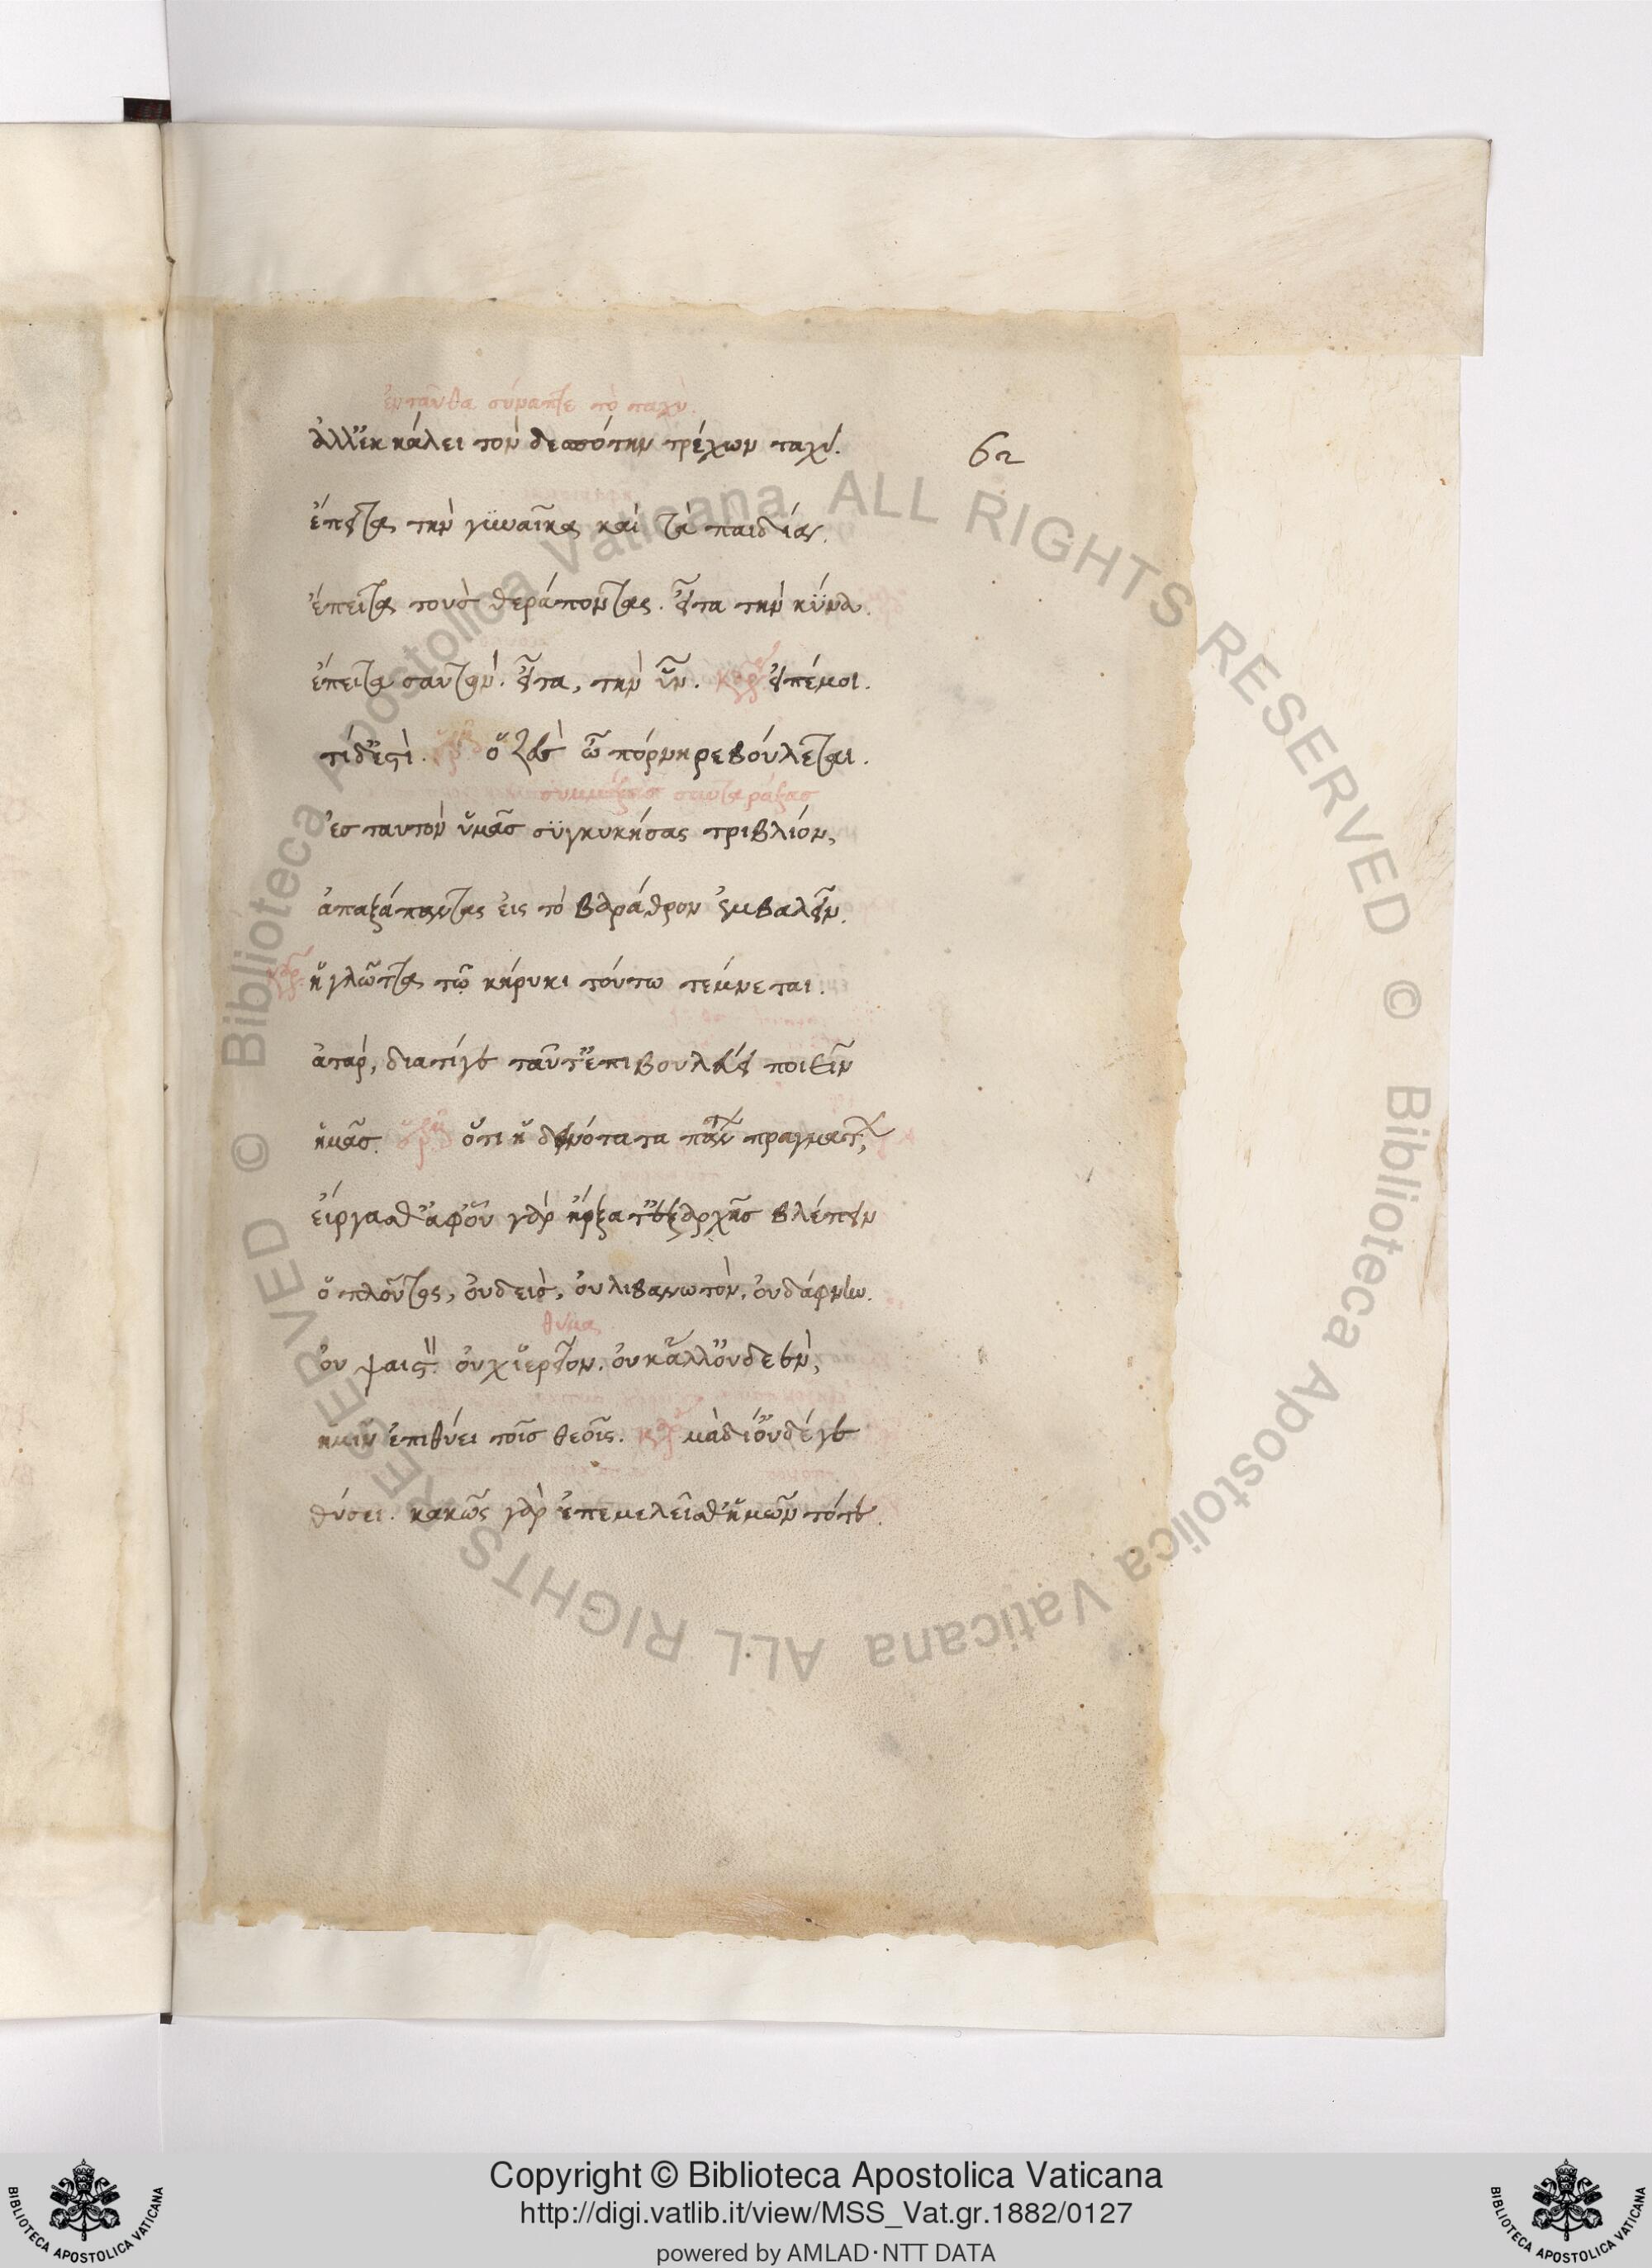 ἐνταῦθα σύναπτε τὸ ταχύ.
ἀλλ' ἐκκάλει τὸν δεσπότην τρέχων ταχύ.
62
ἔπειτα τὴν γϋναῖκα καὶ τὰ παιδία.
ἔπειτα τοὺς θεράποντας. εἶτα τὴν κύνα.
ἔπειτα σαυτὸν. εἶτα, τὴν ὗν. καρ εἰπέμοι.
τί δ' ἐστὶ. ἑρμ ὁ ζεὺς ὦ πόνηρε βούλεται.
συμμίξας συνταράξας
ἐς ταυτὸν ὑμᾶς συγκυκήσας τριβλίον,
ἀπαξάπαντας εἰς τὸ βάραθρον ἐμβαλεῖν.
καρ ἡ γλῶττα τῷ κήρυκι τούτω τέμνεται.
ἀτάρ, διατίγε ταῦτ' ἐπιβουλεύει ποιεῖν
ἡμᾶς. ἑρμ ὅτι ἡ δεινότατα πάντων πραγμάτων,
εἴργασθ' ἀφ' οὗ γὰρ ἤρξατ' ἐξαρχῆς βλέπειν
ὁ πλοῦτος, οὐδεὶς, οὐ λιβανωτὸν, οὐ δάφνην.
θῦμα
οὐ ψαιστὸν. οὐχ ἱερεῖον. οὐκ ἄλλ' οὐδεὲν,
ἡμῖν ἐπιθύει τοῖς θεοῖς. καρ μὰ δί' οὐδέγε
θύσει. κακῶς γὰρ ἐπεμελεῖσθ' ἡμῶν τότε.
Copyright © Biblioteca Apostolica Vaticana
http://digi.vatlib.it/view/MSS_Vat.gr.1882/0127
powered by AMLAD·NTT DATA
© Biblioteca Apostolica Vaticana ALL RIGHTS RESERVED
© Biblioteca Apostolica Vaticana ALL RIGHTS RESERVED
BIBLIOTECA APOSTOLICA VATICANA
BIBLIOTECA APOSTOLICA VATICANA